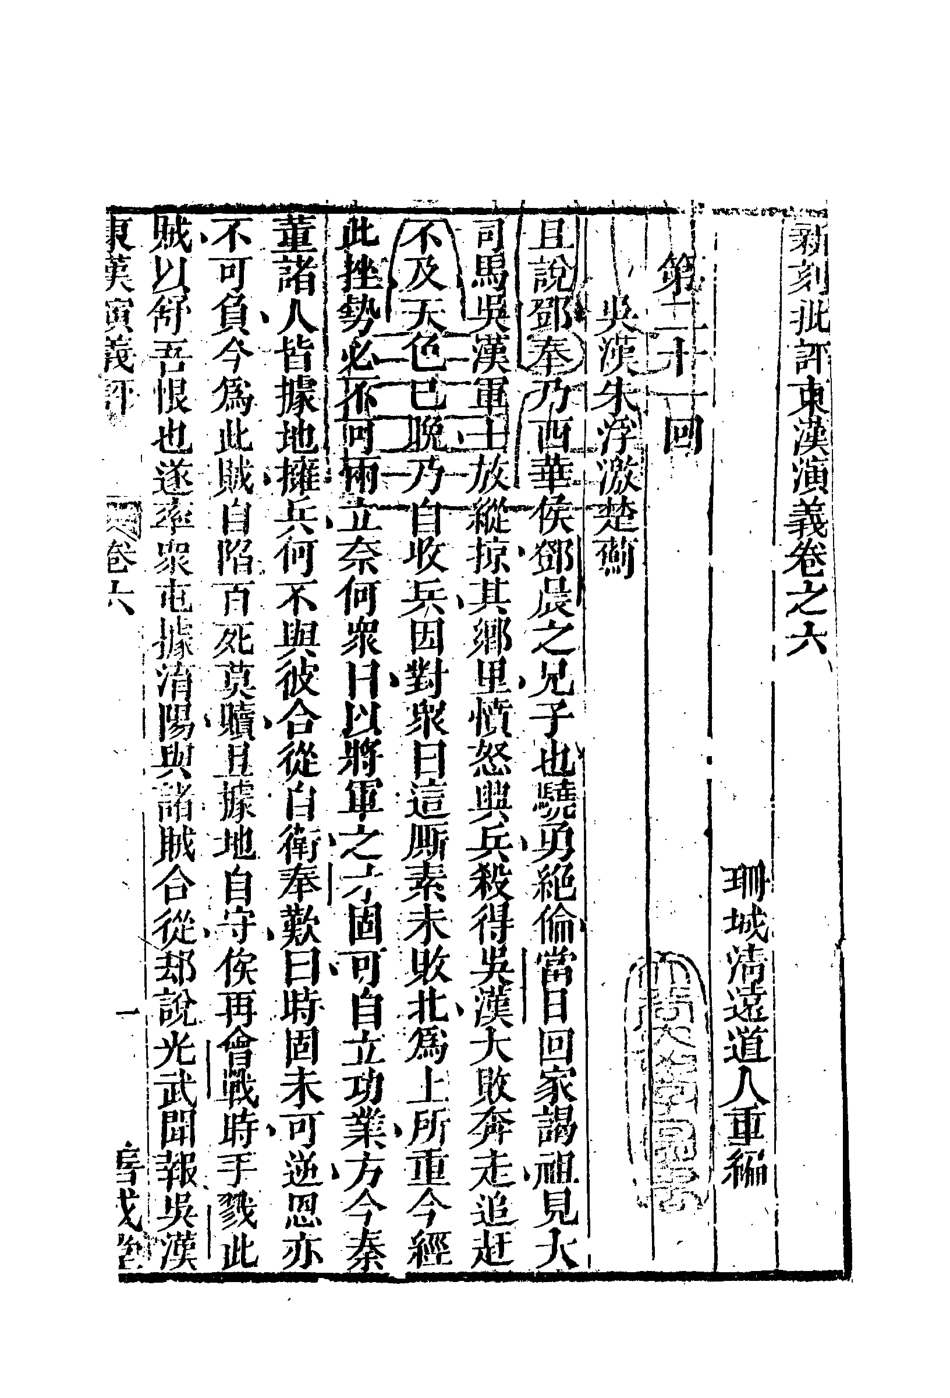 新刻批評東漢演義卷之六
珊城清遠道人重編
第二十一回
吳漢朱浮激楚薊
且說鄧奉乃西華侯鄧晨之兄子也驍勇絕倫當日回家謁祖見大
司馬吳漢軍士放縱掠其鄉里憤怒興兵殺得吳漢大敗奔走追赶
不及天色已晚乃自收兵因對衆曰這厮素未敗北爲上所重今經
此挫勢必不可兩立奈何衆曰以將軍之才固可自立功業方今秦
董諸人皆據地擁兵何不與彼合從自衛奉歎曰時固未可逆恩亦
不可負今爲此賊自陷百死莫贖且據地自守俟再會戰時手戮此
賊以舒吾恨也遂率衆屯據淯陽與諸賊合從却說光武聞報吳漢
東漢演義評 卷六 一 善成堂